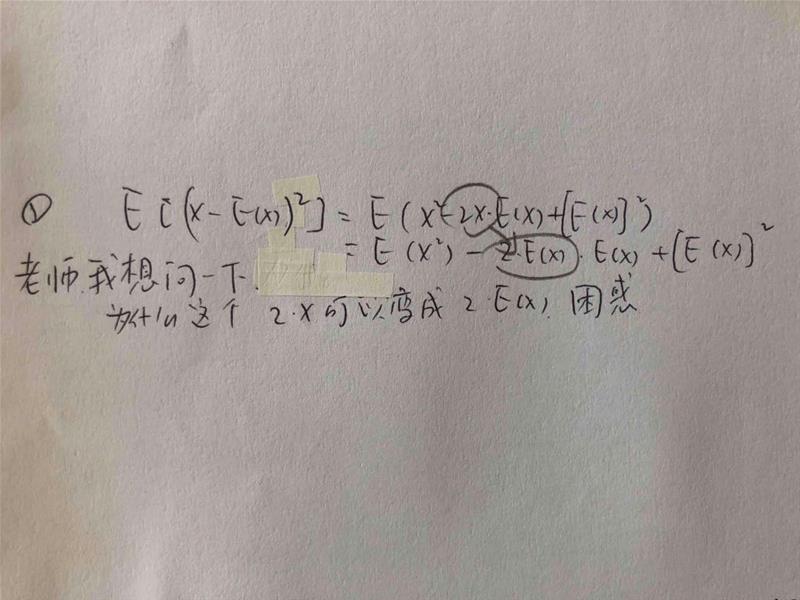 ① E[(X-E(x))²] = E(X²-2X·E(X)+[E(X)]²)
= E(X²)-2·E(X)·E(X)+[E(X)]²
老师,我想问一下.
为什么这个2·X可以变成2·E(X).困惑